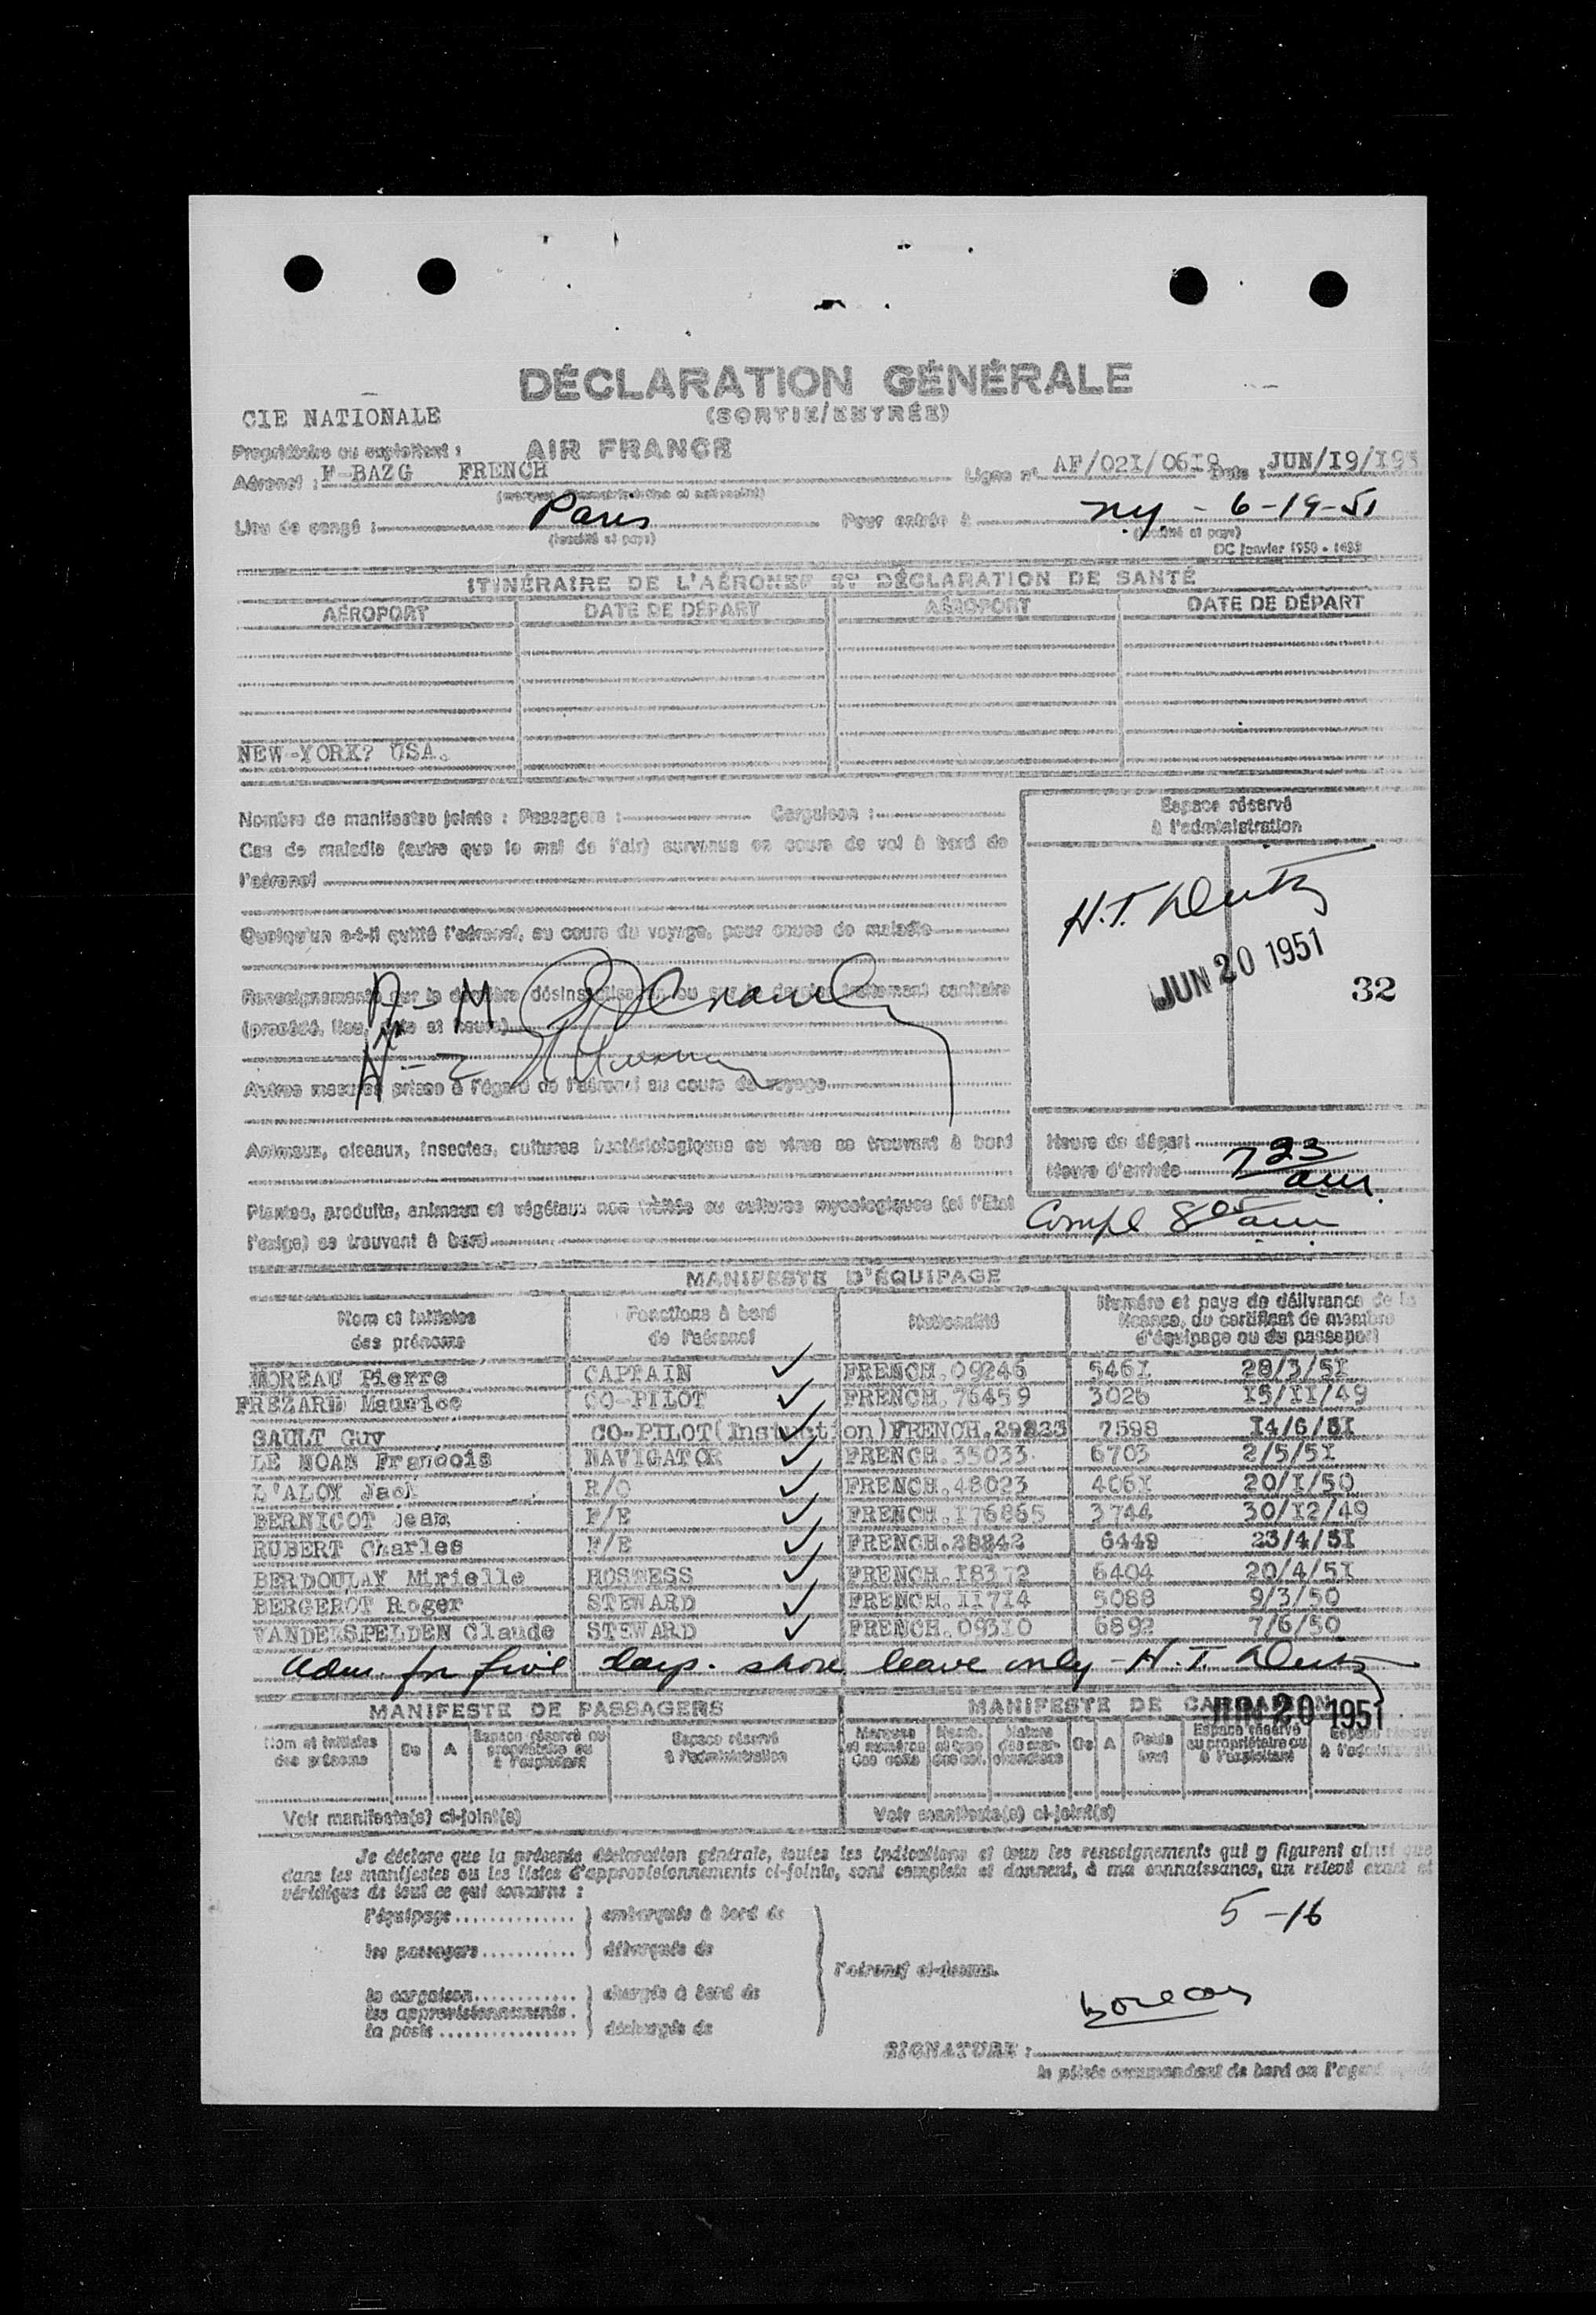 DÉCLARATION GÉNÉRALE
(SORTIE/ENTRÉE)
CIE NATIONALE
Propriétaire ou exploitant : AIR FRANCE
Aéronef : F-BAZG FRENCH Ligne n° AF/021/0619 Date : JUN/19/195
(marques d'immatriculation et nationalité)
Lieu de congé : Paris Pour entrée à ny. - 6-19-51
(localité et pays) (localité et pays)
DC Janvier 1950 - 1488
ITINÉRAIRE DE L'AÉRONEF ET DÉCLARATION DE SANTÉ
AÉROPORT DATE DE DÉPART AÉROPORT DATE DE DÉPART
NEW-YORK? USA.
Nombre de manifestes joints : Passagers : Cargaison :
Espace réservé
à l'administration
Cas de maladie (autre que le mal de l'air) survenus en cours de vol à bord de
l'aéronef
H.T.
Quelqu'un a-t-il quitté l'aéronef, au cours du voyage, pour cause de maladie
JUN 20 1951
32
Renseignements sur la dernière désinsectisation ou sur le dernier traitement sanitaire
(procédé, lieu, date et heure)
Autres mesures prises à l'égard de l'aéronef au cours du voyage
Animaux, oiseaux, insectes, cultures bactériologiques ou virus se trouvant à bord
Heure de départ
Heure d'arrivée 7 23 am.
Plantes, produits, animaux et végétaux non traités ou cultures mycologiques (si l'Etat
l'exige) se trouvant à bord
Compl 8 05 am
MANIFESTE D'ÉQUIPAGE
Nom et initiales des prénoms Fonctions à bord de l'aéronef Nationalité Numéro et pays de délivrance de la licence, du certificat de membre d'équipage ou du passeport
MOREAU Pierre CAPTAIN FRENCH.09246 5461 28/3/51
FREZARD Maurice CO-PILOT FRENCH.76459 3026 15/11/49
SAULT Guy CO-PILOT(Instuction)FRENCH.29823 7598 14/6/51
LE NOAN Francois NAVIGATOR FRENCH.35033 6703 2/5/51
L'ALOY Jack R/O FRENCH.48023 4061 20/1/50
BERNICOT Jean F/E FRENCH.176865 3744 30/12/49
RUBERT Charles F/E FRENCH.28242 6449 23/4/51
BERDOULAY Mirielle HOSTESS FRENCH.18372 6404 20/4/51
BERGEROT Roger STEWARD FRENCH.11714 5088 9/3/50
VANDERSPELDEN Claude STEWARD FRENCH.09310 6892 7/6/50
Adm. for five days. shore leave only - H.T.
MANIFESTE DE PASSAGERS MANIFESTE DE CARGAISON
JUN 20 1951
Nom et initiales des prénoms De A Espace réservé au propriétaire ou à l'exploitant Espace réservé à l'administration Marques et numéros des colis Nomb. et type des col. Nature des marchandises De A Poids brut Espace réservé au propriétaire ou à l'exploitant Espace réservé à l'administration
Voir manifeste(s) ci-joint(s) Voir manifeste(s) ci-joint(s)
Je déclare que la présente déclaration générale, toutes les indications et tous les renseignements qui y figurent ainsi que
dans les manifestes ou les listes d'approvisionnements ci-joints, sont complets et donnent, à ma connaissance, un relevé exact et
véridique de tout ce qui concerne :
5-16
l'équipage } embarqués à bord de
les passagers } débarqués de
l'aéronef ci-dessus.
la cargaison } chargés à bord de
les approvisionnements.
la poste } déchargés de
SIGNATURE :
le pilote commandant de bord ou l'agent